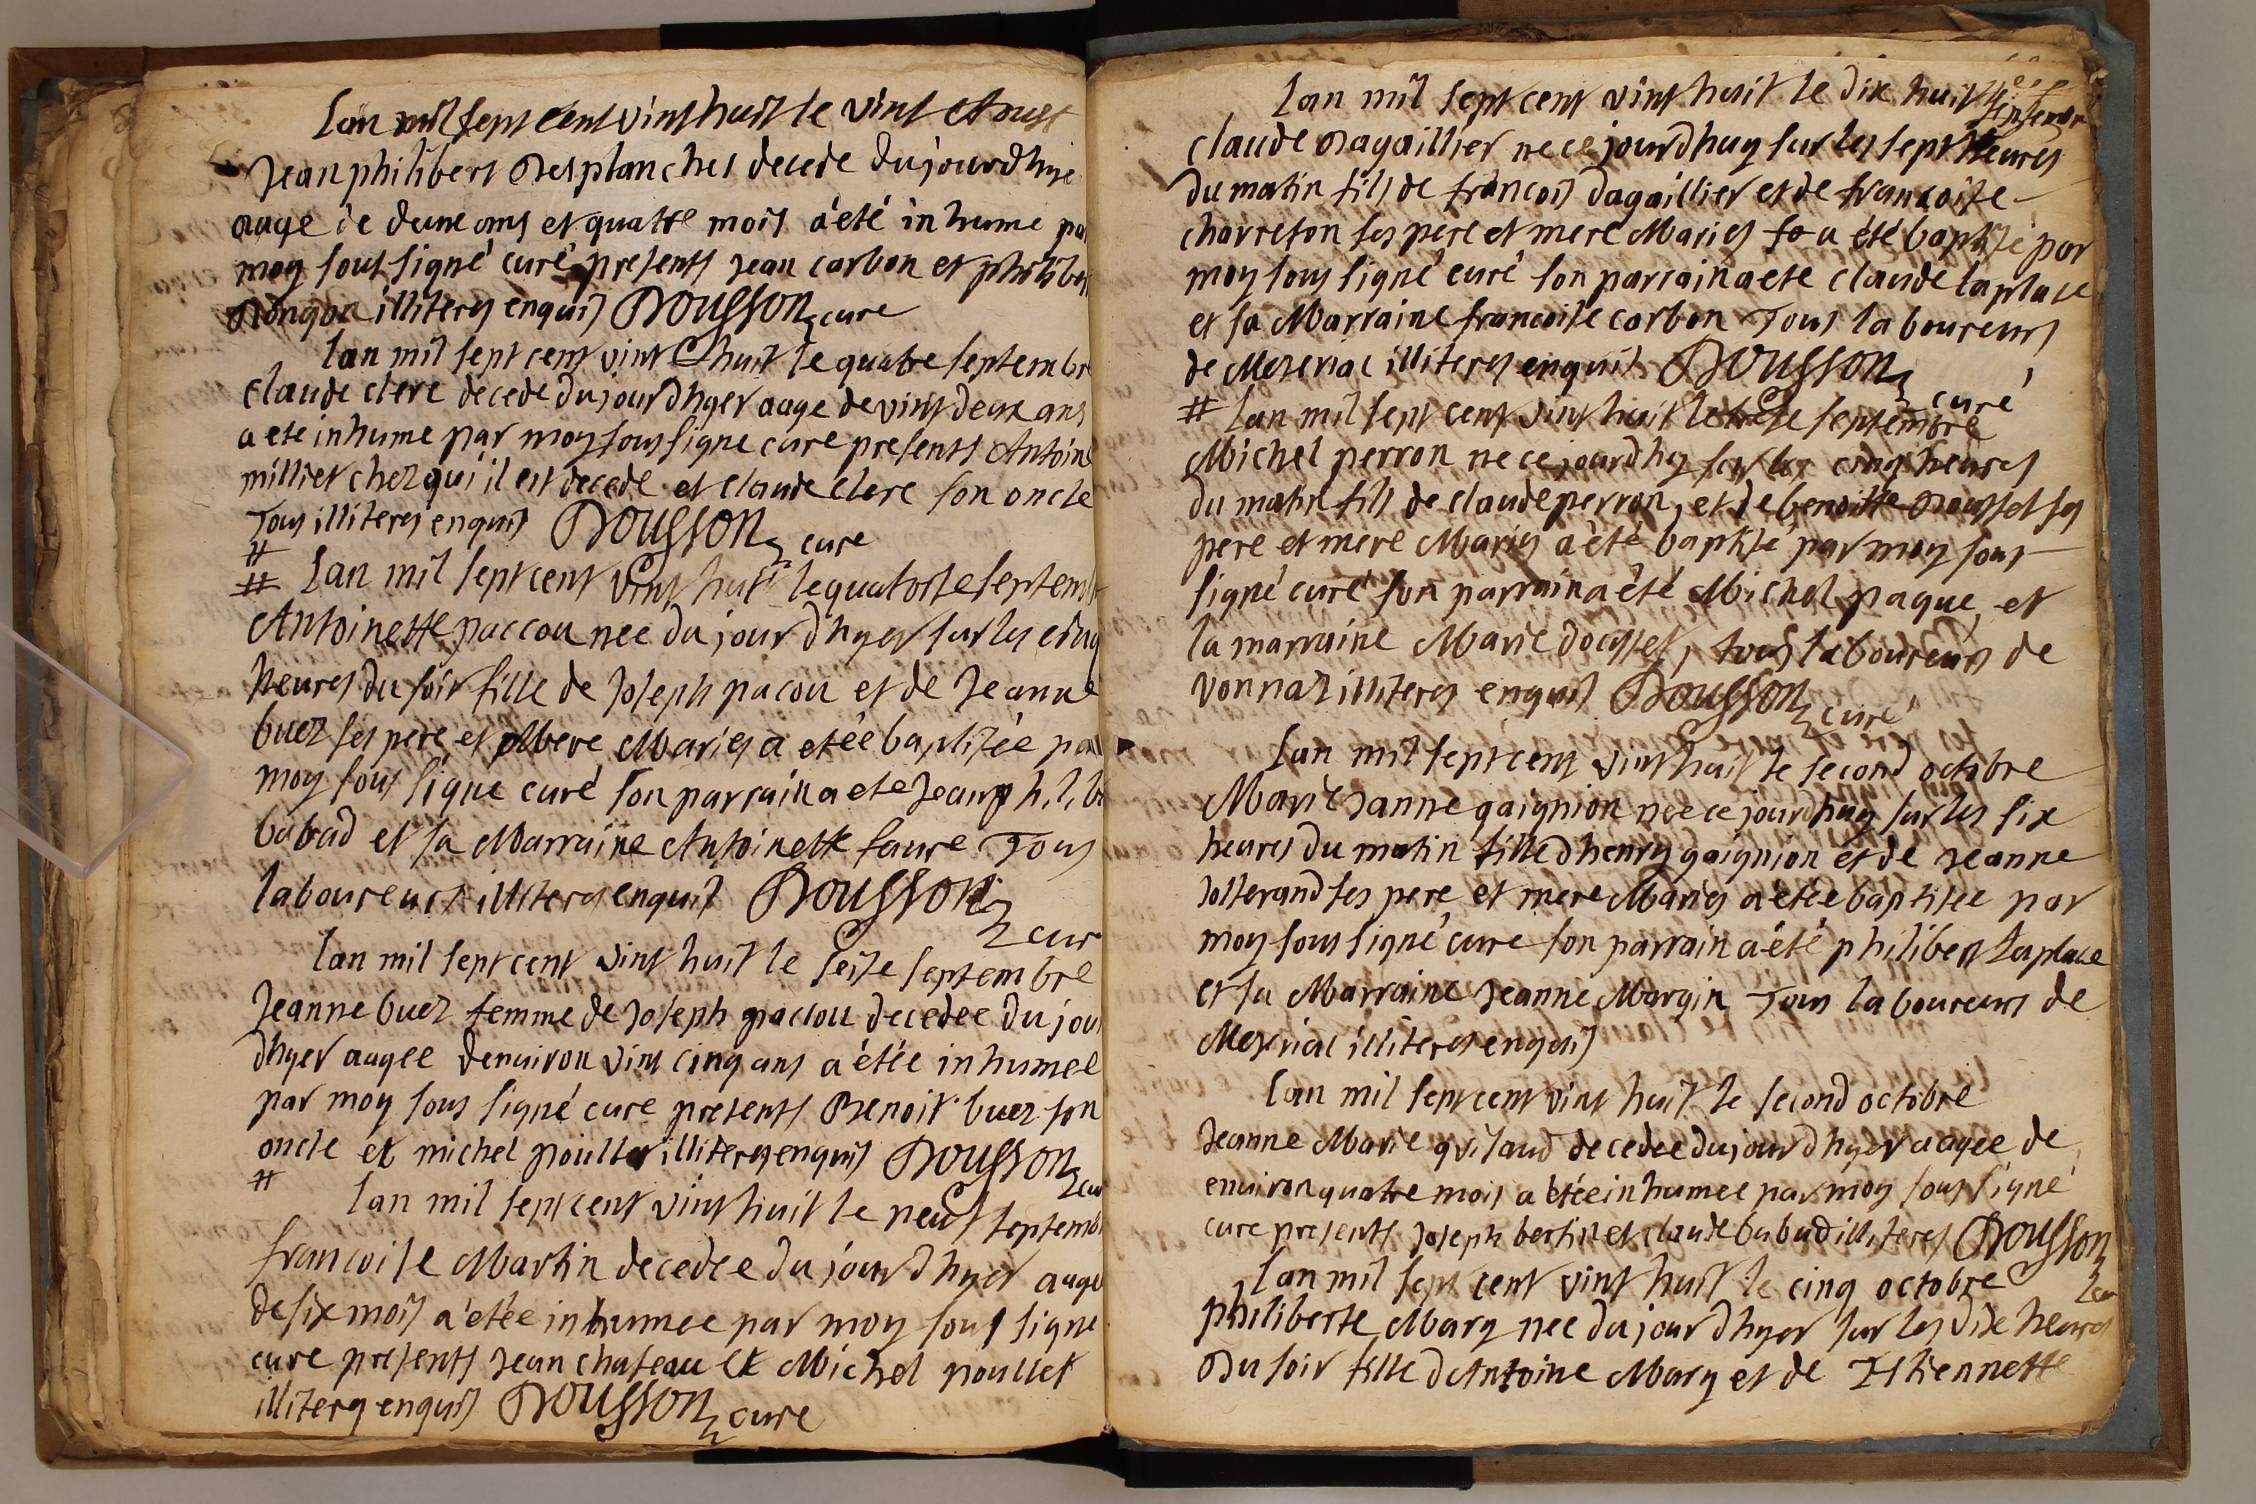 Lan mil sept cent vint huit le vint Aoust
Jean philibert Desplanches decede dujourdhyer
aage de deux ans et quatre mois a été inhume par
moy sous signé curé presents Jean carbon et philiber
illiteres enquis Dousson cure
lan mil sept cent vint huit le quatre septembre
claude clerc decede du jourdhyer aage de vint deux ans
a ete inhume par moy sous signe cure presents Antoine
milliet chez qui il est decede et claude clerc son oncle
Tous illiteres enquis Dousson cure
#
# Lan mil sept cent vint huit le quatorse septem
Antoinette paccou nee du jour dhyer sur les cinq
heures du soir fille de Joseph pacou et de Jeanne
buez ses pere et Mere Maries a etée baptisée par
moy sous signe curé son parrain a ete Jean phili
babad et sa Marraine Antoinette faure Tous
laboureurs illiteres enquis Dousson
cur
lan mil sept cent vint huit le seise septembre
Jeanne buez femme de Joseph paccou decedee du jour
dhyer aagee denuiron vint cinq ans a étée inhumee
par moy sous signé cure presents Benoit buez son
oncle et michel poullet illiteres enquis Dousson
cur
# lan mil sept cent vint huit le neuf septemb
francoise Martin decedee du jour dhyer aage
de six mois a étée inhumee par moy sous signe
cure presents Jean chateau et Michel poullet
illiteres enquis Dousson cure
Lan mil sept cent vint huit le dix huit septembre
claude Dagaillier ne ce jourdhuy sur les sept heures
du matin fils de francois dagaillier et de francoise
charreton ses pere et mere Maries a été baptisé par
moy sous signé curé son parrain a ete claude laplace
et sa Marraine francoise carbon Tous laboureurs
de Mezeriac illiteres enquis Dousson
curé
# Lan mil sept cent vint huit le septembre
Michel perron ne ce jourdhuy sur les cinq heures
du matin fils de claude perron, et de benoitte Dousset ses
pere et mere Maries a été baptisé par moy sous
signé curé son parrain a été Michel paque, et
la marraine Marie dousset, tous laboureurs de
vonnaz illiteres enquis Dousson curé
Lan mil sept cent vint huit le second octobre
Marie Janne gaignion nee ce jourdhuy sur les six
heures du matin fille dhenry gaignion et de Jeanne
Jolterand ses pere et mere Maries a étée baptisee par
moy sous signé cure son parrain a été philibert Laplace
et sa Marraine Jeanne Margin Tous laboureurs de
Mezeriac illiteres enquis
Lan mil sept cent vint huit le second octobre
Jeanne Marie decedee dujourdhyer aagee de
enuiron quatre mois a étée inhumee par moy sous signé
cure presents Joseph bertin et claude babad illiteres Dousson
cu
Lan mil sept cent vint huit le cinq octobre
philiberte Mary nee du jour dhyer sur les dix heures
Du soir fille dAntoine Mary et de Estiennette